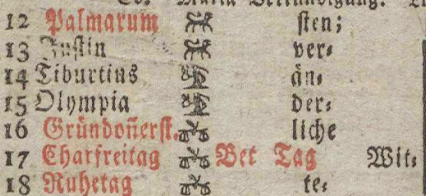 12 Palmarum sten;
13 Justin ver-
14 Tiburtius än-
15 Olympia der-
16 Gründoñerst. liche
17 Charfreitag Bet Tag Wit-
18 Ruhetag te-